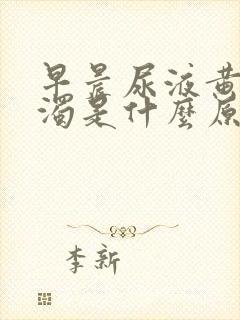 早晨尿液黄
浊是什麽原
李新